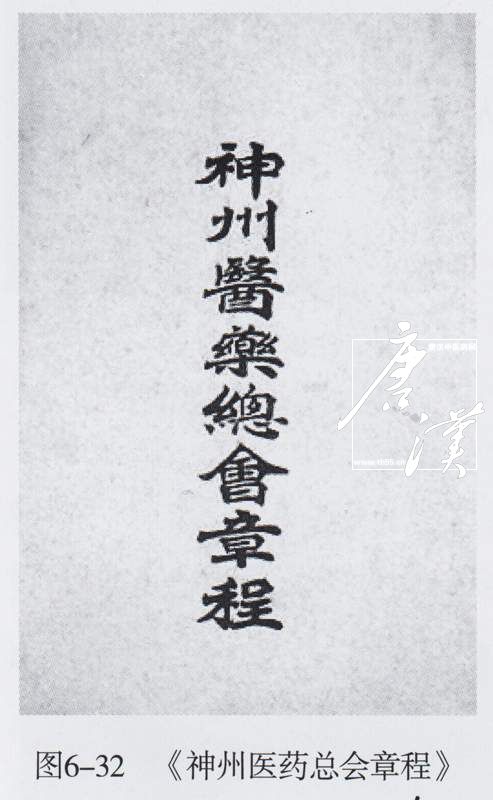 神州醫藥總會章程
唐漢
图6-32 《神州医药总会章程》